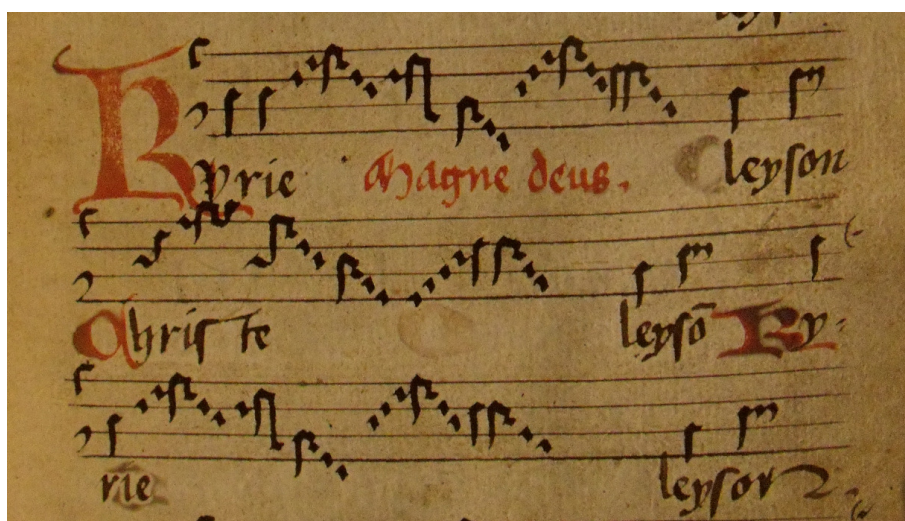 Kyrie Magne deus. leyson
Christe leysō Ky-
rie leyson